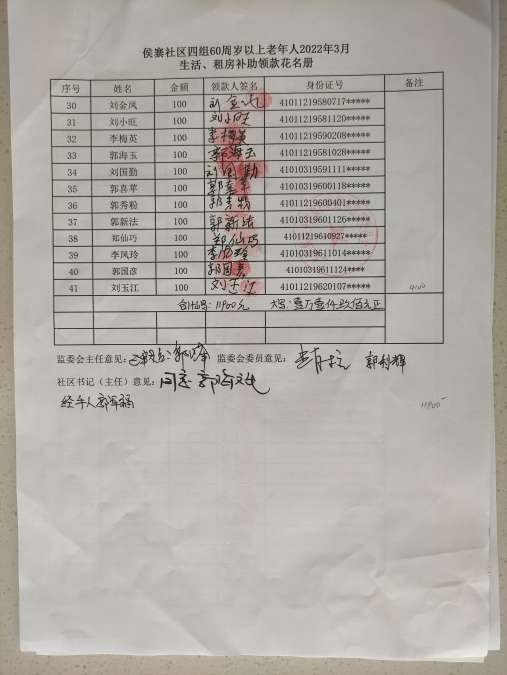 侯寨社区四组60周岁以上老年人2022年3月
生活、租房补助领款花名册
序号 姓名 金额 领款人签名 身份证号 备注
30 刘金凤 100 41011219580717*****
31 刘小旺 100 刘小旺 41011219581120*****
32 李梅英 100 李梅英 41011219590208*****
33 郭海玉 100 郭海玉 41011219581028*****
34 刘国勤 100 刘国勤 41010319591111*****
35 郭喜苹 100 郭喜苹 41010319600118*****
36 郭秀粉 100 郭秀粉 41011219600401*****
37 郭新法 100 郭新法 41010319601126*****
38 郑仙巧 100 郑仙巧 41011219610927*****
39 李凤玲 100 李凤玲 41010319611014*****
40 郭国彦 100 41010319611124****
41 刘玉江 100 刘玉江 41011219620107***** 4100
合计: 11900元 大写: 壹万壹仟玖佰元正
监委会主任意见: 监委会委员意见:
社区书记（主任）意见: 同意
经手人
11900